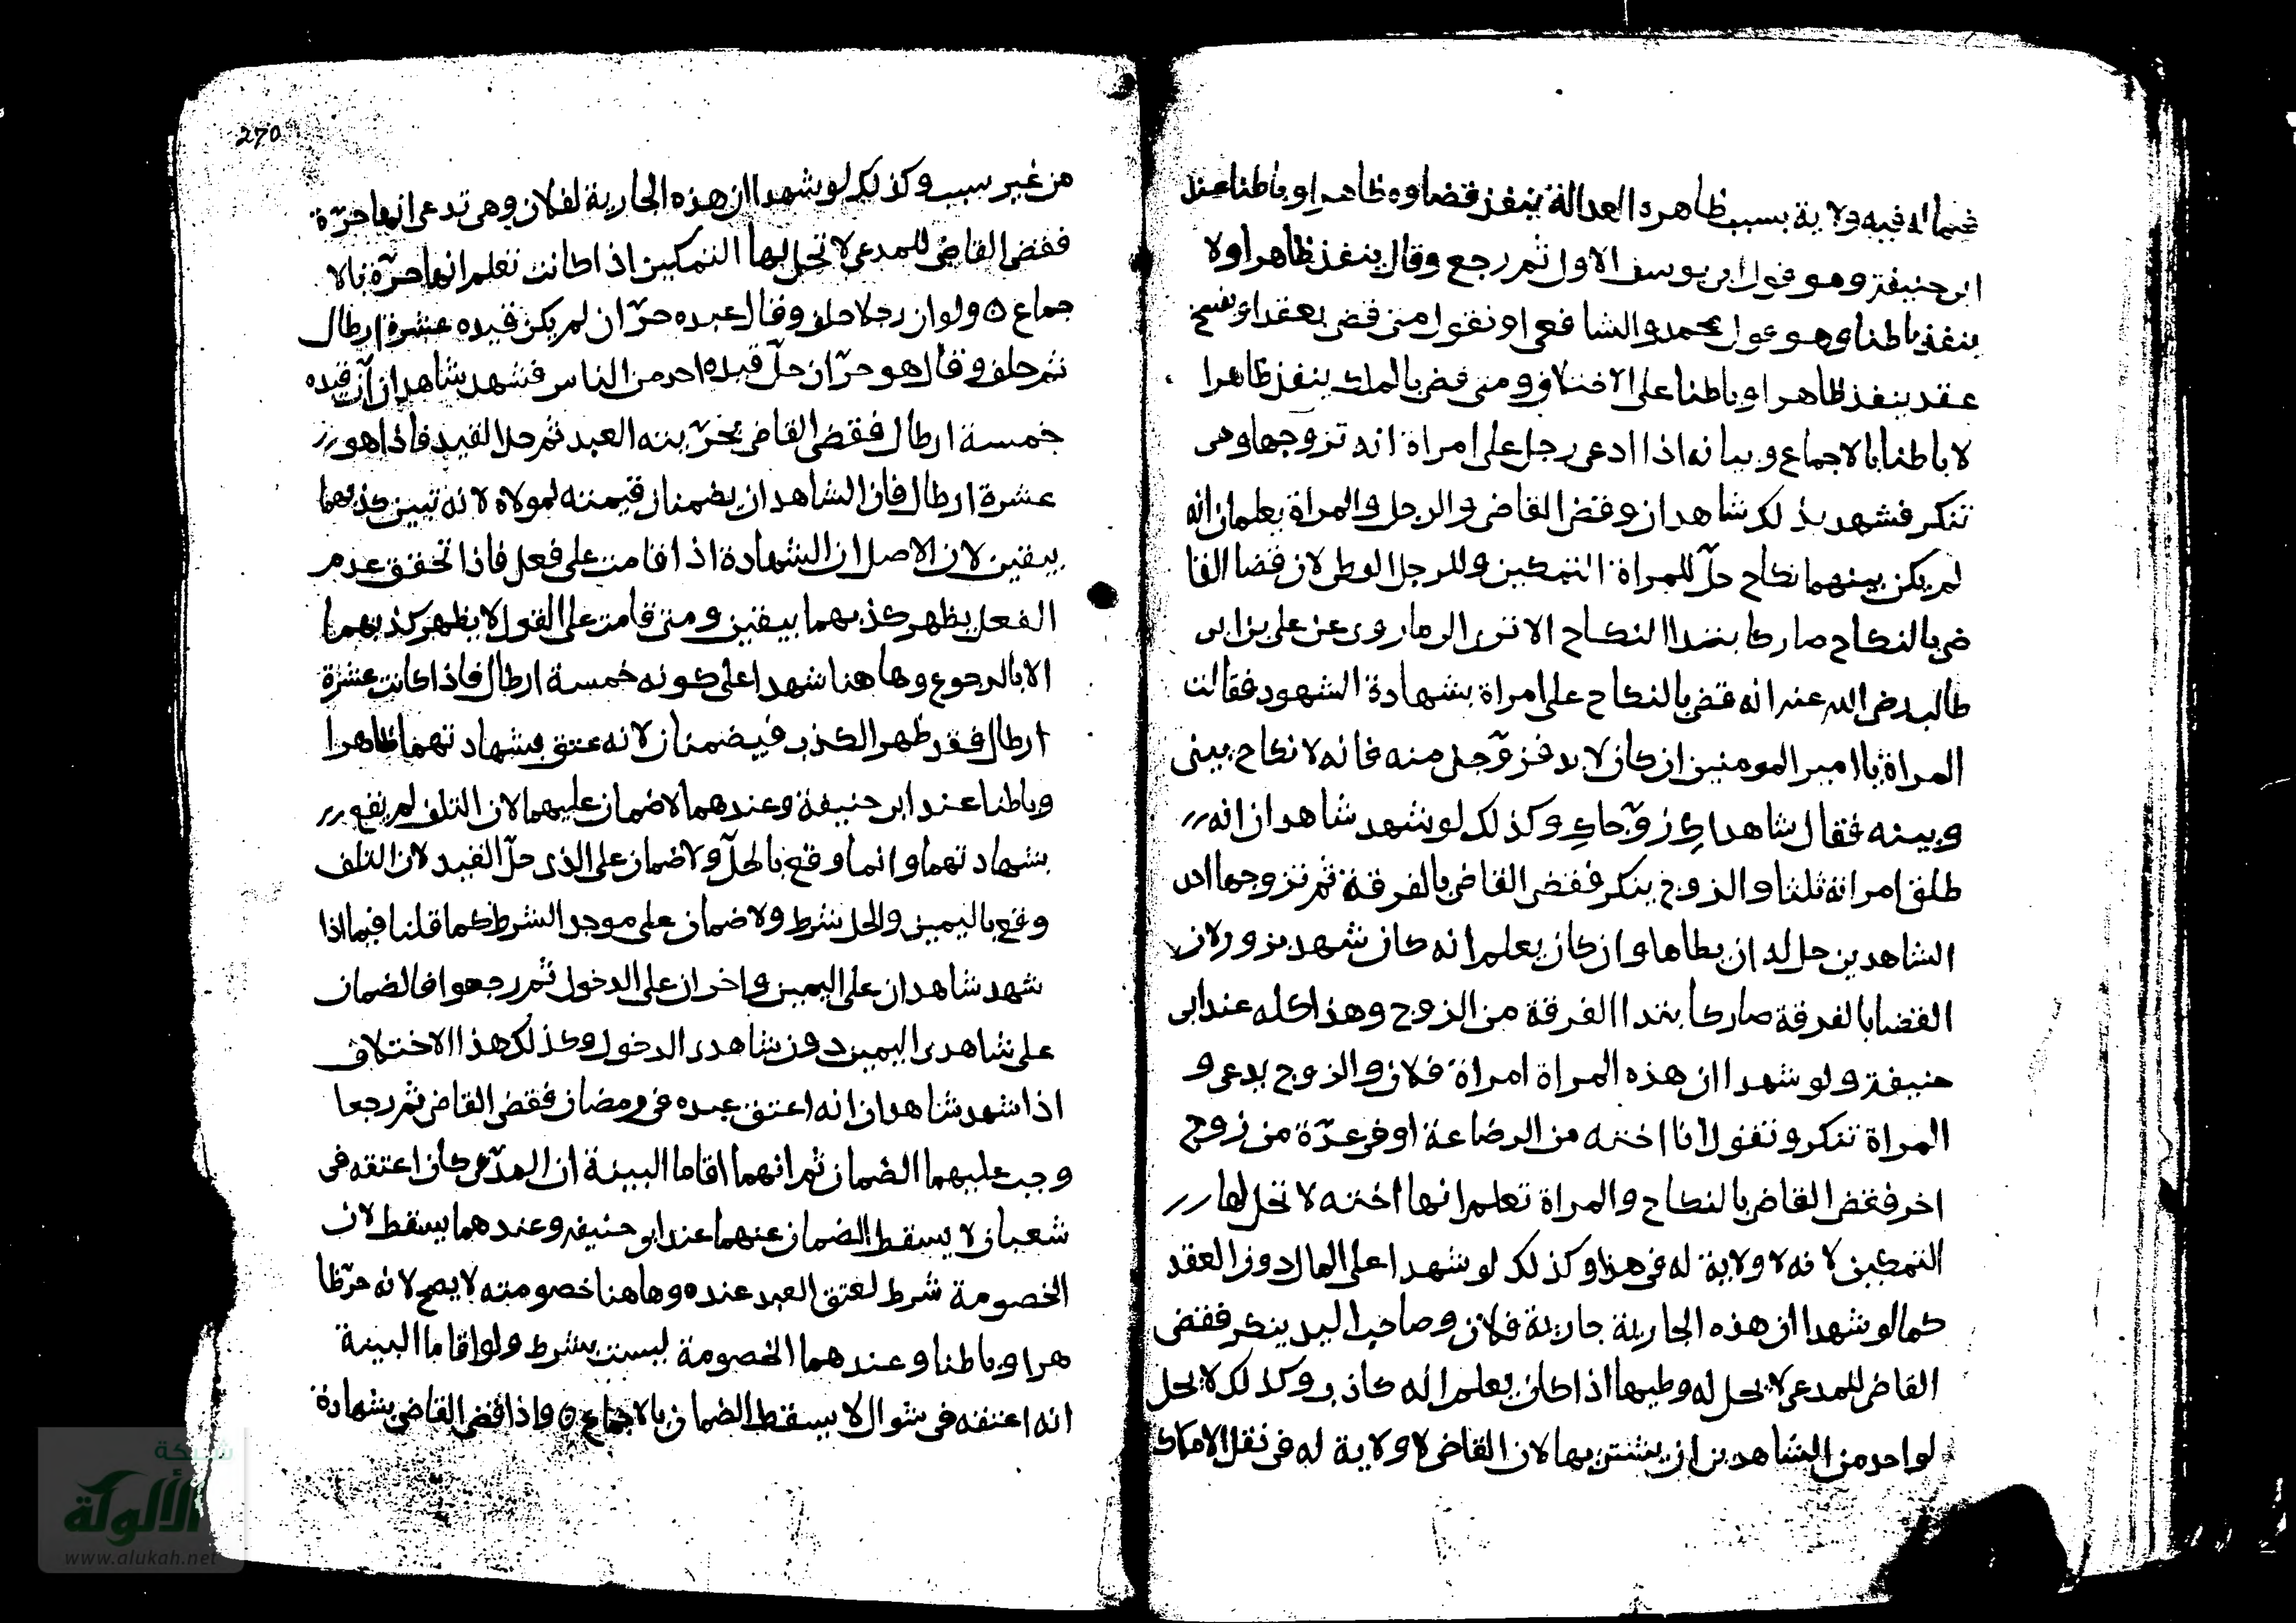 فيما له فيه ولاية بسبب ظاهره العدالة ينفذ قضاوه ظاهرا وباطنا عند
ابى حنيفة وهو قول ابى يوسف الاول ثم رجع وقال ينفذ ظاهرا ولا
ينفذ باطنا وهو قول محمد والشافعى او نقول متى قضى بعقد او بفسخ
عقد ينفذ ظاهرا وباطنا على الاختلاف ومتى قضى بالملك ينفذ ظاهرا
لا باطنا بالاجماع وبيانه اذا ادعى رجل على امراة انه تزوجها وهى
تنكر فشهد بذلك شاهدان وقضى القاضى والرجل والمراة يعلمان انه
لم يكن بينهما نكاح حلّ للمراة التمكين وللرجل الوطى لان قضا القا
ضى بالنكاح صار كابتدا النكاح الا ترى الى ما روى عن على بن ابى
طالب رضى الله عنه انه قضى بالنكاح على امراة بشهادة الشهود فقالت
المراة يا امير المومنين ان كان لا بد فزوّجنى منه فانه لا نكاح بينى
وبينه فقال شاهداكِ زوّجاكِ وكذلك لو شهد شاهدان انه
طلق امراته ثلثا والزوج ينكر فقضى القاضى بالفرقة ثم تزوجها احد
الشاهدين حل له ان يطاها وان كان يعلم انه كان شهد بزور لان
القضا بالفرقة صار كابتدا الفرقة من الزوج وهذا كله عند ابى
حنيفة ولو شهدا ان هذه المراة امراة فلان والزوج يدعى و
المراة تنكر وتقول انا اخته من الرضاعة او فى عدّة من زوج
اخر فقضى القاضى بالنكاح والمراة تعلم انها اخته لا تحل لها
التمكين لانه لا ولاية له فى هذا وكذلك لو شهدا على المال دون العقد
كما لو شهدا ان هذه الجارية جارية فلان وصاحب اليد ينكر فقضى
القاضى للمدعى لا يحل له وطيها اذا كان يعلم انه كاذب وكذلك لا يحل
لواحد من الشاهدين ان يشترى بها لان القاضى لا ولاية له فى نقل الاملاك
270
من غير سبب وكذلك لو شهدا ان هذه الجارية لفلان وهى تدعى انها حرّة
فقضى القاضى للمدعى لا تحل لها التمكين اذا كانت تعلم انها حرّة بالا
جماع ه ولو ان رجلا حلف وقال عبده حرّ ان لم يكن قيده عشرة ارطال
ثم حلف وقال هو حرّ ان حلّ قيده احد من الناس فشهد شاهدان ان قيده
خمسة ارطال فقضى القاضى بحرّيته العبد ثم حلا القيد فاذا هو
عشرة ارطال فان الشاهدان يضمنان قيمته لمولاه لانه تبين كذبهما
بيقين لان الاصل ان الشهادة اذا قامت على فعل فاذا تحقق عدم
الفعل يظهر كذبهما بيقين ومتى قامت على القول لا يظهر كذبهما
الا بالرجوع وهاهنا شهدا على كونه خمسة ارطال فاذا كانت عشرة
ارطال فقد ظهر الكذب فيضمنان لانه عتق بشهادتهما ظاهرا
وباطنا عند ابى حنيفة وعندهما لا ضمان عليهما لان التلف لم يقع
بشهادتهما وانما وقع بالحلّ ولا ضمان على الذى حلّ القيد لان التلف
وقع باليمين والحل شرط ولا ضمان على موجد الشرط كما قلنا فيما اذا
شهد شاهدان على اليمين واخران على الدخول ثم رجعوا فالضمان
على شاهدى اليمين دون شاهدى الدخول وكذلك هذا الاختلاف
اذا شهد شاهدان انه اعتق عبده فى رمضان فقضى القاضى ثم رجعا
وجب عليهما الضمان ثم انهما اقاما البينة ان المدّعى كان اعتقه فى
شعبان لا يسقط الضمان عنهما عند ابو حنيفه وعندهما يسقط لان
الخصومة شرط لعتق العبد عنده وهاهنا خصومته لا يصح لانه حرّ ظا
هرا وباطنا وعندهما الخصومة ليست بشرط ولو اقاما البينة
انه اعتقه فى شوال لا يسقط الضمان بالاجماع ه واذا قضى القاضى بشهادة
شبكة
الألوكة
www.alukah.net